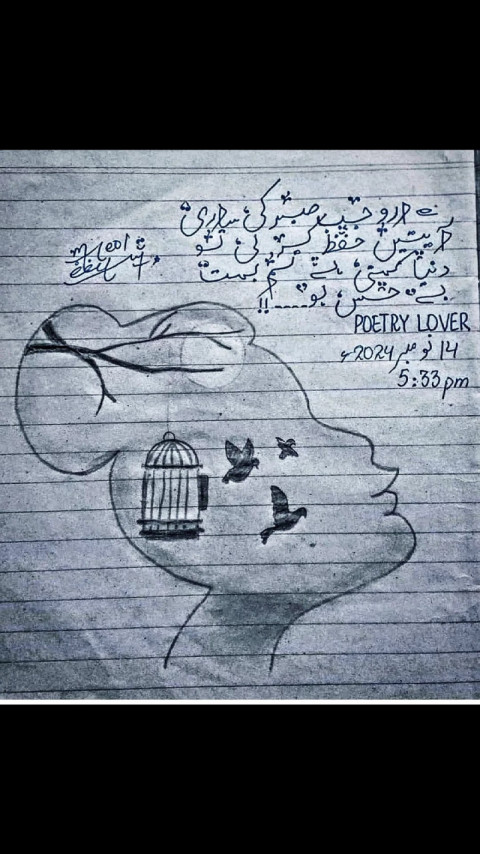 ؎ اور جب صبر کی ساری
آیتیں حفظ کر لی تو
دنیا کہتی ہے تم بہت
بے حس ہو....!!
POETRY LOVER
14 نومبر 2024ء
5:33 pm